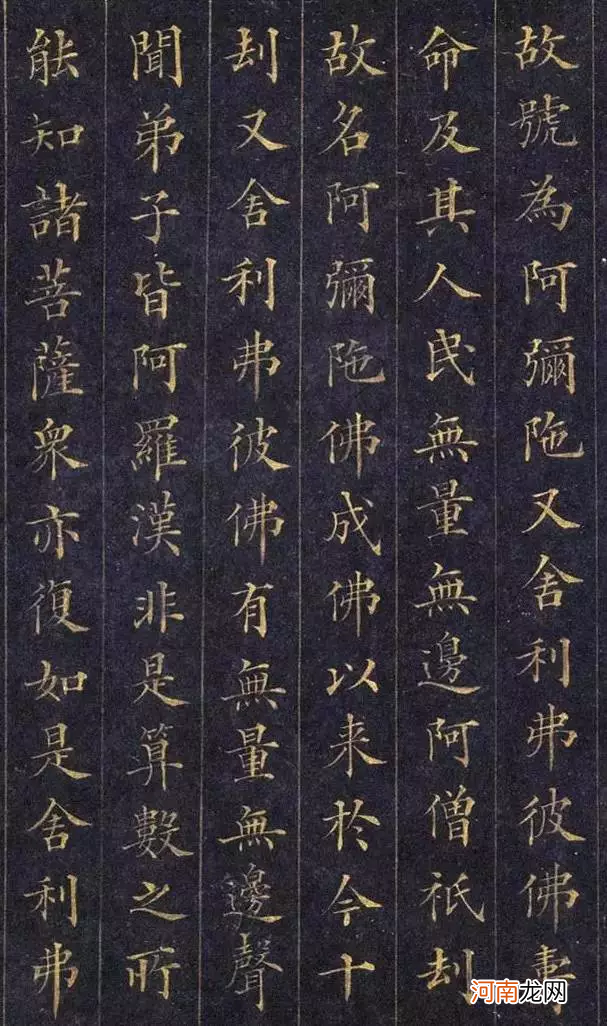 故號為阿彌陁又舍利弗彼佛壽
命及其人民無量無邊阿僧祇刦
故名阿彌陁佛成佛以来於今十
刦又舍利弗彼佛有無量無邊聲
聞弟子皆阿羅漢非是算數之所
能知諸菩薩衆亦復如是舍利弗
河南龙网